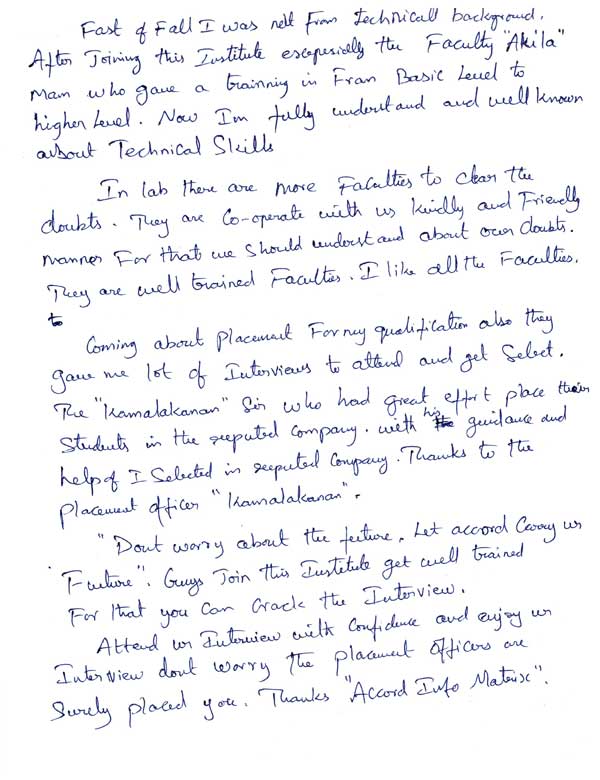 Fast of Fall I was not From technicall background.
After Joining this Institute escepesically the Faculty "Akila"
Mam who gave a trainning in Fram Basic Level to
higher Level. Now Im fully understand and well known
about Technical Skills
In lab there are more Faculties to clear the
doubts. They are Co-operate with us kindly and Friendly
manner For that we Should understand about own doubts.
They are well trained Faculties. I like all the Faculties.
to
Coming about Placement For my qualification also they
gave me lot of Interviews to attend and get Select.
The "Kamalakanan" Sir who had great effort place their
Students in the reeputed Company. with his guidance and
help of I Selected in reeputed Company. Thanks to the
Placement officer "Kamalakanan".
"Dont worry about the future. Let accord Carry ur
Fueture". Guys Join this Institute get well trained
For that you Can Crack the Interview.
Attend ur Interview with Confidence and enjoy ur
Interview dont worry the placement officers are
Surely placed you. Thanks "Accord Info Matrix".